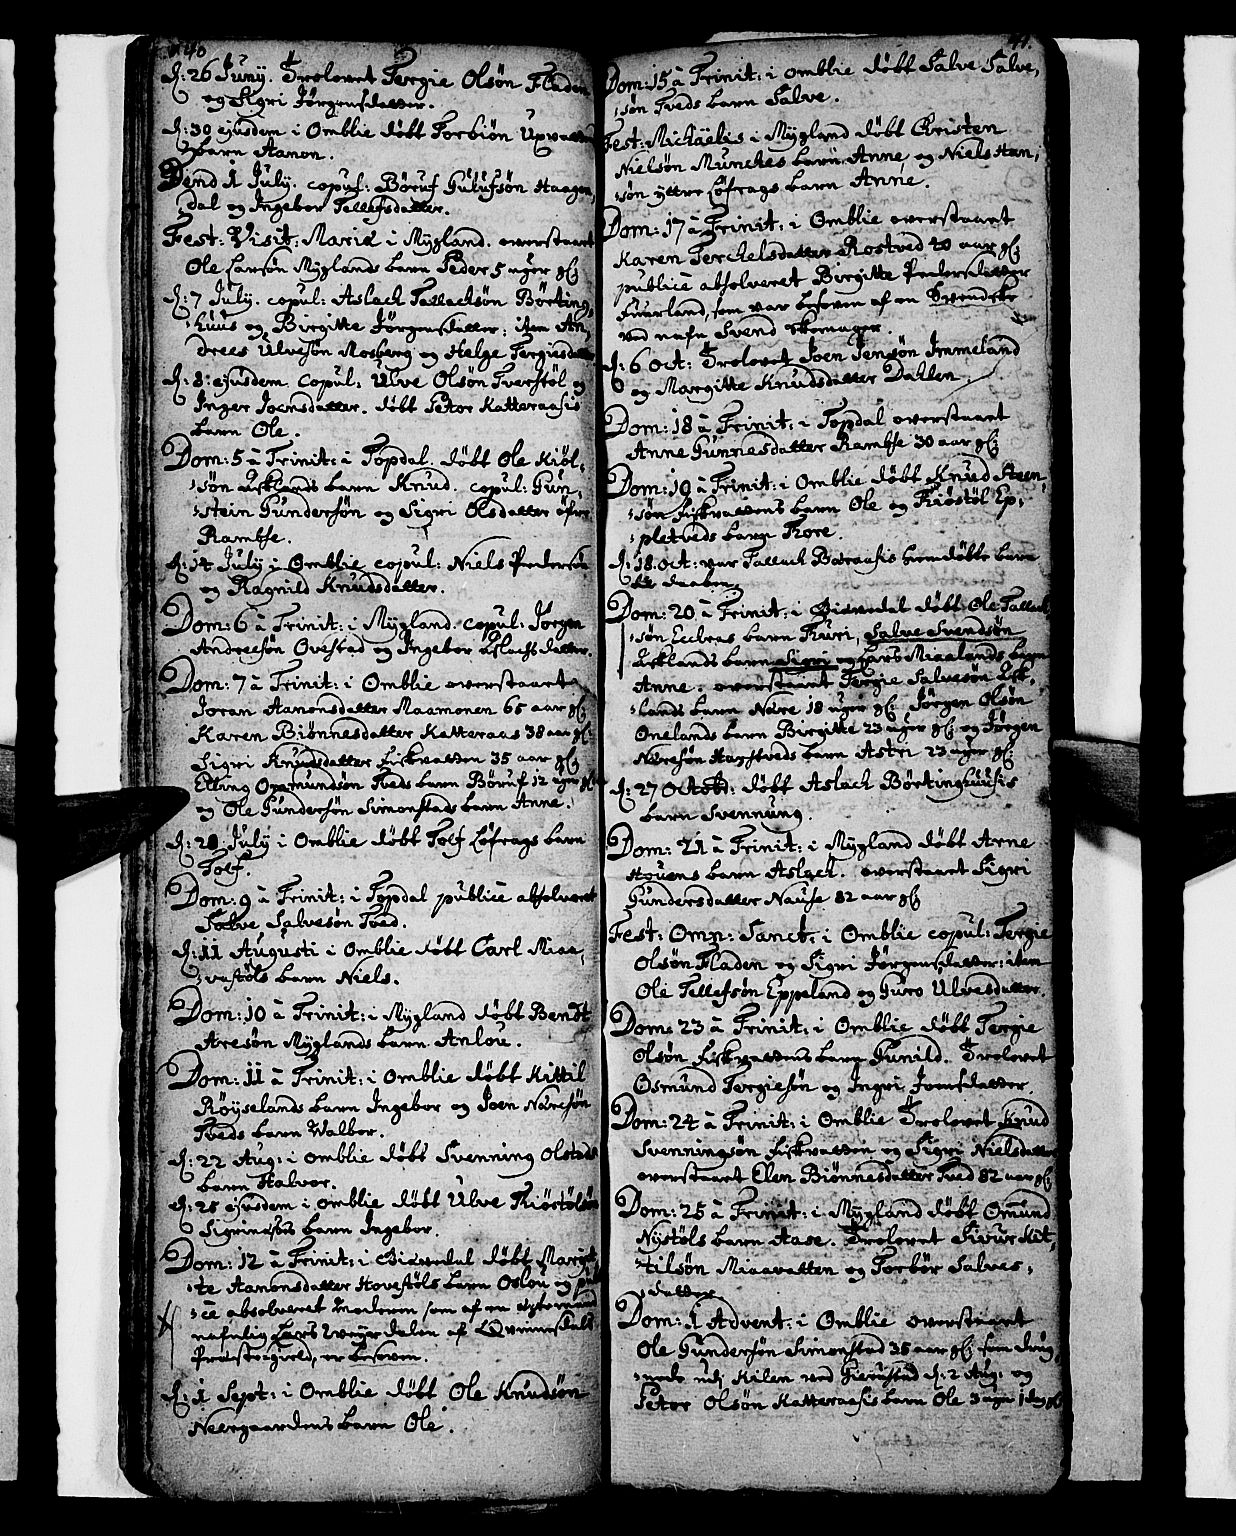 40
d: 26 Juny. Trolovet Tergie Olsøn Fladen
og Sigri Jørgensdatter.
d: 30 ejusdem i Omblie døbt Torbiøn Upvatten
barn Aamon.
Dend 1 July. copul: Børuf Gulufsøn Haagen,
dal og Ingebor Tellefsdatter.
Fest: Visit: Mariæ i Mygland. overstaaet
Ole Larsøn Myglands barn Peder 5 uger gl:
d: 7 July. copul: Aslach Tallachsøn Børting,
huus og Birgitte Jørgensdatter: item An,
drees Ulvesøn Mosberg og Helge Tergiesdatter
d: 8: ejusdem. Copul: Ulve Olsøn Tverstøl og
Inger Joensdatter. døbt Petor Katteraasis
barn Ole.
Dom: 5 à Trinit: i Topdal. døbt Ole Kiøl,
søn Asklands barn Knud. copul: Gun,
stein Gundersøn og Sigri Olsdatter øfre
Rambse.
d: 14 July i Omblie copul: Niels Pedersøn
og Ragnild Knudsdatter.
Dom: 6 à Trinit: i Mygland. copul: Jørgen
Andresøn Ovestad og Ingebor Aslachsdatter.
Dom: 7 à Trinit: i Omblie overstaaet
Joran Aanonsdatter Maamonen 65 aar gl:
Karen Biønnesdatter Katteraas 38 aar gl:
Sigri Knudsdatter Fiskvatten 35 aar gl:
Elling Opmundsøn Tveds barn Børuf 12 uger gl:
og Ole Gundersøn Simonstads barn Anne.
d: 28 July i Omblie døbt Tolf Løfrags barn
Tolf.
Dom: 9 à Trinit: i Topdal publicè absolveret
Salve Salvesøn Tved.
d: 11 Augusti i Omblie døbt Carl Miaa,
vastøls barn Niels.
Dom: 10 à Trinit: i Mygland døbt Bendt
Aresøn Myglands barn Anlou.
Dom: 11 à Trinit: i Omblie døbt Kittil
Røyselands barn Ingebor og Joen Naresøn
Tveds barn Walbor.
d: 22 Aug: i Omblie døbt Svenning Olstads
barn Halvor.
d: 25 ejusdem i Omblie døbt Ulve Kiøstølsøn
barn Ingebor.
Dom: 12 à Trinit: i døbt Margit,
te Aanonsdatter Hovestøls barn Oslou og publi,
cè absolveret moderen som af en
nafnlig Lars af Qvinnesdals
Præstegield, er besoven.
d: 1 Sept: i Omblie døbt Ole Knudsøn
Neergaardens barn Ole.
41.
Dom: 15 à Trinit: i Omblie døbt Salve Salve,
søn Tveds barn Salve.
Fest: Michaëlis i Mygland døbt Christen
Nielsøn Munches barn Anne, og Niels Han,
søn yttre Løfrags barn Anne.
Dom: 17 à Trinit: i Omblie overstaaet
Karen Terchelsdatter Rostved 40 aar gl:
publicè absolveret Birgitte Pedersdatter
Fuurland, som var besoven af en Svendske
ved nafn Svend Skomager.
d: 6 Oct: Trolovet Joen Jensøn Immeland
og Margitte Knudsdatter Dahlen.
Dom: 18 à Trinit: i Topdal overstaaet
Anne Gunnesdatter Rambse 30 aar gl:
Dom: 19 à Trinit: i Omblie døbt Knud Steen,
søn Fiskvattens barn Ole og Kiøstøl Ep,
pletveds barn Tore.
d: 18 Oct: var Tallach Baasaasis hiemdøbte barn
til daaben.
Dom: 20 à Trinit: i døbt Ole Tallach,
søn Ecleas barn Turi, Salve Svendsøn
Asklands barn Sigri og Lars Miaalands barn
Anne. overstaaet Tergie Salvesøn Ask,
lands barn Nare 18 uger gl: Jørgen Olsøn
Onelands barn Birgitte 23 uger gl: og Jørgen
Naresøn Hagstveds barn Astri 23 uger gl:
d: 27 Octobr: døbt Aslach Børtinghuusis
barn Svennung.
Dom: 21 à Trinit: i Mygland døbt Arne
Houens barn Aslach. overstaaet Sigri
Gundersdatter Nause 82 aar gl:
Fest: Omn: Sanct: i Omblie copul: Tergie
Olsøn Fladen og Sigri Jørgensdatter: item
Ole Tellefsøn Eppeland og Guro Ulvesdatter.
Dom: 23 à Trinit: i Omblie døbt Tergie
Olsøn Fiskvattens barn Gunild. Trolovet
Osmund Tergiesøn og Ingri Joensdatter
Dom: 24 à Trinit: i Omblie Trolovet Knud
Svenningsøn Fiskvatten og Sigri Nielsdatter
overstaaet Elen Biønnesdatter Tved 82 aar gl:
Dom: 25 à Trinit: i Mygland døbt Omund
Nystøls barn Aase. Trolovet Sivur Kit,
tilsøn Miaavatten og Torbør Salves,
datter
Dom: 1 Advent: i Omblie overstaaet
Ole Gundersøn Simonstad 35 aar gl: som drug,
nede udj Kilen ved Gierustad d: 2 Aug: og
Petor Olsøn Katteraasis barn Ole 3 uger 1 dag gl: